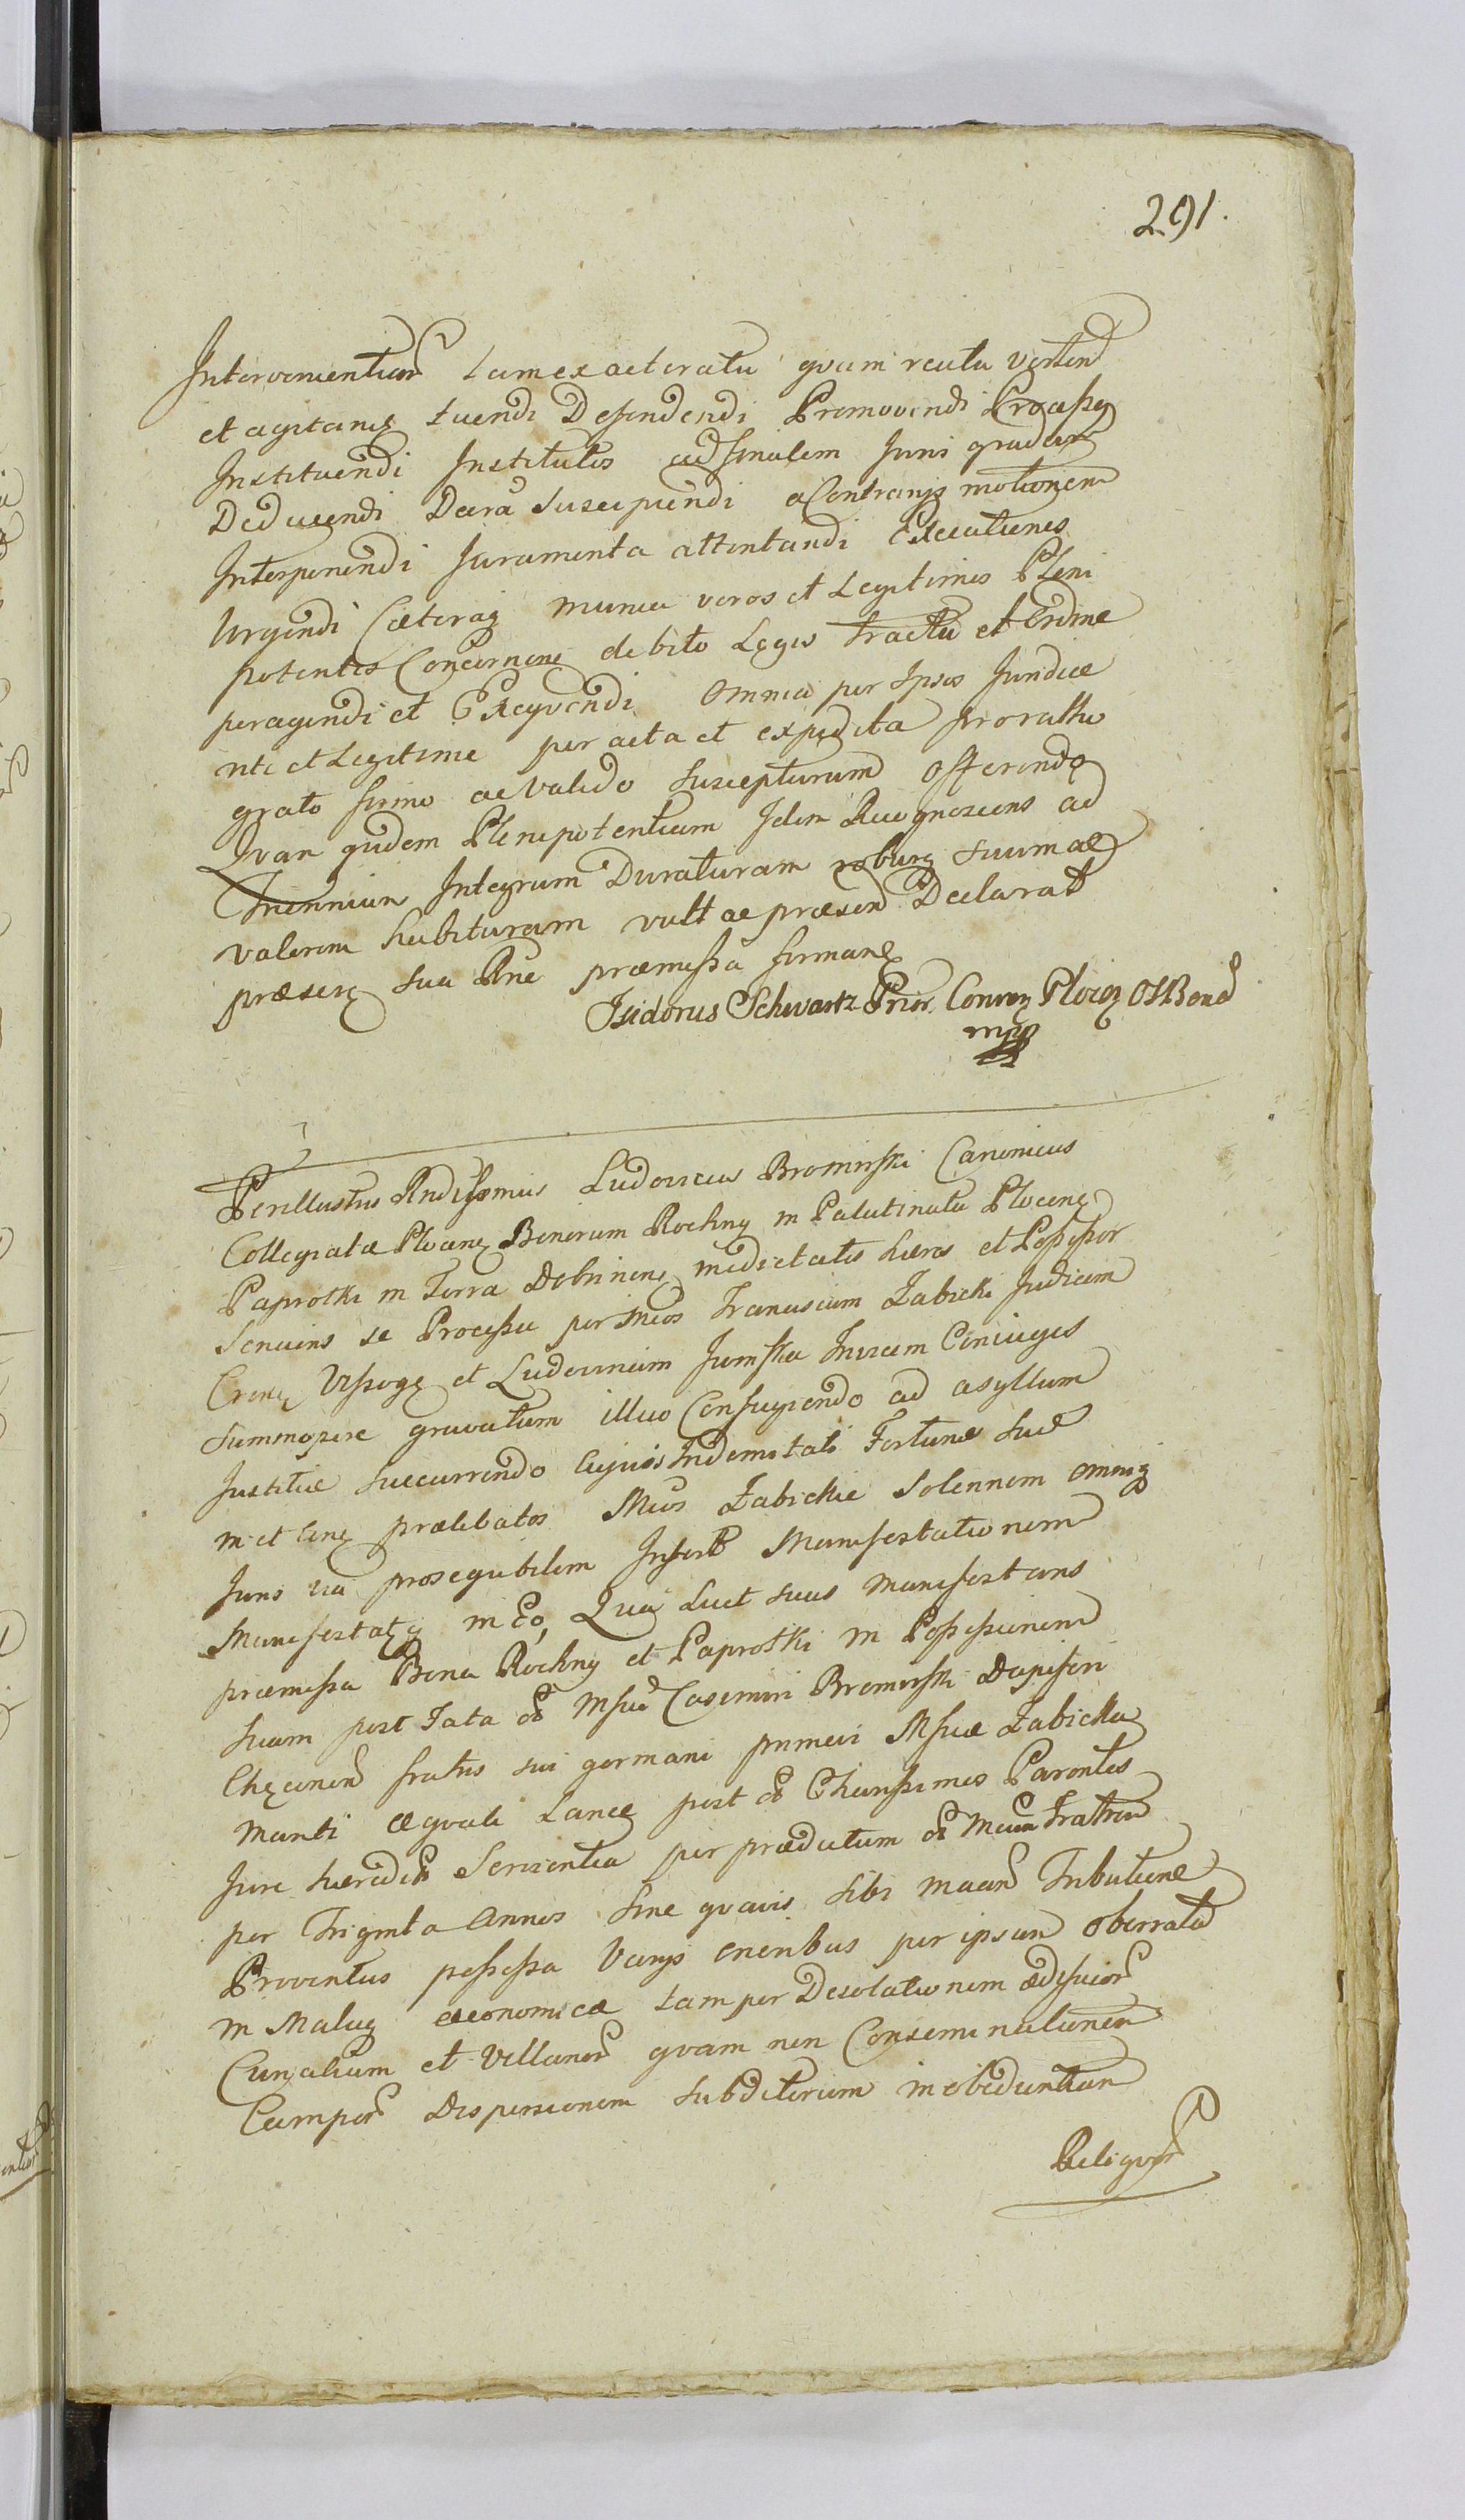 291.
Intervenientium tam ex actoratu qvam reatu verten
et agitaneę tuendi Defendendi Promovendi Processq
Instituendi Institutos ad finalem Juris gradum
Deducendi Decra suscipiendi a Contrarijs motionem
Interponendi Juramenta attentandi Executiones
Urgendi Cæteraq munia veros et Legitimos Pleni
potentes Concernen debito Legis tractu et Ordine
peragendi et Exeqvendi omnia per Ipsos Juridice
rite et Legitime per acta et expedita pro rathu
grato firmo ac valido suscepturum offerendo
Qvam qvidem Plenipotentiam Idem Recognoscens ad
Triennium Integrum Duraturam roburq suum ac
valorem habituram vult ac præsen Declarat
præsenę sua Rne præmissa firmanę
Isidorus Schwartz Prior Conven Plocen OSBened
mpp
Perillustris Rndissimus Ludovicus Bromirski Canonicus
Collegiatæ Plocenę Bonorum Rochny in Palatinatu Plocenę
Paprotki in Terra Dobrinenę medietatis hæres et Possessor
Sentiens se Processu per Mcos Franciscum Zabicki Judicem
Crenę Vissogę et Ludovicam Invicem Coniuges
summopere gravatum illuo Confugiendo ad asyllum
Justitiæ succurrendo Indemnitati Fortunæ suæ
in et Conę prælibatos Mcos Zabickie Solennem omniq
Juris via proseqvibilem Infert Manifestationem
Manifestatq in Eo, Qvia licet suas manifestans
præmissa Bona Rochny et Paprotki in Possessionem
suam post Fata oł Mfici Casimiri Bromirski Dapiferi
fratris sui germani primevi Mficæ Zabicka
Mariti æqvali Lance post oł Charissimos Parentes
Jure hæredit Servientia per prædictum oł Mcum Fratrem
per Triginta Annos sine qvavis sibi Tributione
Proventus possessa Varijs oneribus per ipsum oberrata
in Malaq æconomica tam per Desolationem ædificior
Curialium et Villanor qvam non Conseminationem
Campor Dispersionem subditorum inobedientiam
Reliqvor